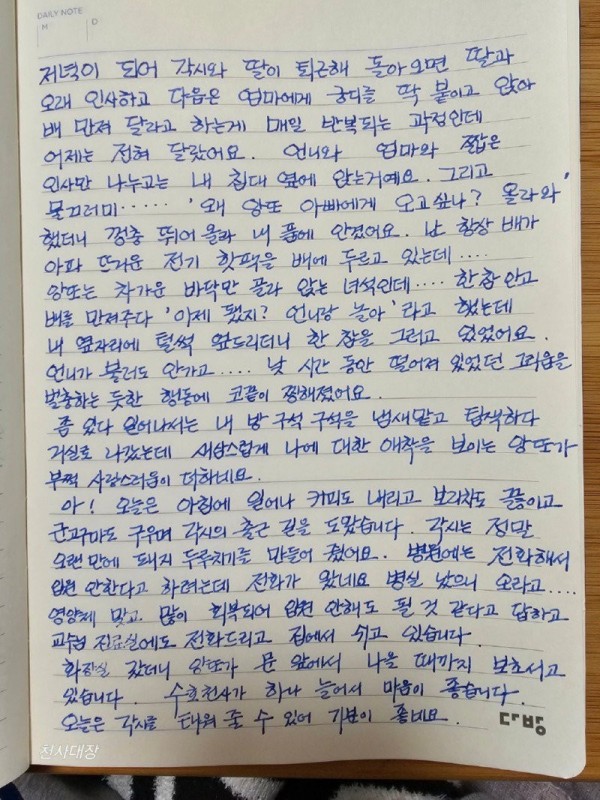 DAILY NOTE
M D
저녁이 되어 각시와 딸이 퇴근해 돌아오면 딸과
오래 인사하고 다음은 엄마에게 궁디를 딱 붙이고 앉아
배 만져 달라고 하는게 매일 반복되는 과정인데
어제는 전혀 달랐어요. 언니와 엄마와 짧은
인사만 나누고는 내 침대 옆에 앉는거예요. 그리고
물끄러미...... '왜 앙또 아빠에게 오고싶나? 올라와'
했더니 껑충 뛰어올라 내 품에 안겼어요. 난 항상 배가
아파 뜨거운 전기 핫팩을 배에 두르고 있는데....
앙또는 차가운 바닥만 골라 앉는 녀석인데.... 한참 안고
배를 만져주다 '이제 됐지? 언니랑 놀아' 라고 했는데
내 옆자리에 털썩 엎드리더니 한 참을 그러고 있었어요.
언니가 불러도 안가고.... 낮 시간 동안 떨어져 있었던 그리움을
벌충하는 듯한 행동에 코끝이 찡해졌어요.
좀 있다 일어나서는 내 방 구석 구석을 냄새맡고 탐색하다
거실로 나갔는데 새삼스럽게 나에 대한 애착을 보이는 앙또가
부쩍 사랑스러움이 더하네요.
아! 오늘은 아침에 일어나 커피도 내리고 보리차도 끓이고
군고구마도 구우며 각시의 출근 길을 도왔습니다. 각시는 정말
오랜만에 돼지 두루치기를 만들어 줬어요. 병원에는 전화해서
입원 안한다고 하려는데 전화가 왔네요 병실 났으니 오라고....
영양제 맞고. 많이 회복되어 입원 안해도 될 것 같다고 답하고
교수님 진료실에도 전화드리고 집에서 쉬고 있습니다.
화장실 갔더니 앙또가 문 앞에서 나올 때까지 보초서고
있습니다. 수호천사가 하나 늘어서 마음이 좋습니다.
오늘은 각시를 태워 줄 수 있어 기분이 좋네요. 다방
천사대장